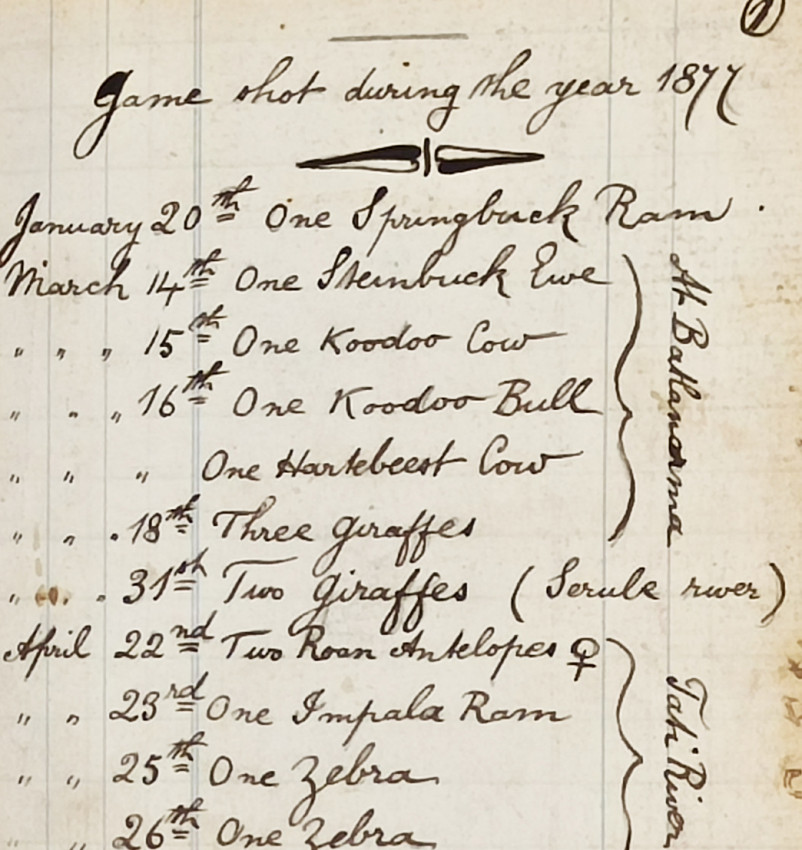 1
Game shot during the year 1877
January 20th One Springbuck Ram .
March 14th One Steinbuck Ewe
" " " 15th One Koodoo Cow
" " " 16th One Koodoo Bull
" " " One Hartebeest Cow
" " " 18th Three Giraffes
At
" " " 31st Two Giraffes (Serule river)
April 22nd Two Roan Antelopes ♀
" " 23rd One Impala Ram
" " 25th One Zebra
" " 26th One Zebra
Tati River